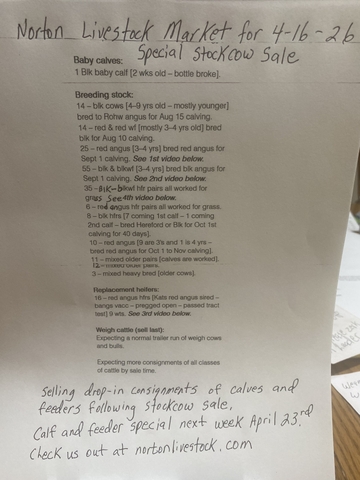 Norton Livestock Market for 4-16-26
Special Stockcow Sale
Baby calves:
1 Blk baby calf [2 wks old - bottle broke].
Breeding stock:
14 – blk cows [4-9 yrs old - mostly younger]
bred to Rohw angus for Aug 15 calving.
14 – red & red wf [mostly 3-4 yrs old] bred
blk for Aug 10 calving.
25 – red angus [3-4 yrs] bred red angus for
Sept 1 calving. See 1st video below.
55 – blk & blkwf [3-4 yrs] bred blk angus for
Sept 1 calving. See 2nd video below.
35 - Blk - blkwf hfr pairs all worked for
grass See 4th video below.
6 – red angus hfr pairs all worked for grass.
8 – blk hfrs [7 coming 1st calf - 1 coming
2nd calf - bred Hereford or Blk for Oct 1st
calving for 40 days].
10 – red angus [9 are 3's and 1 is 4 yrs -
bred red angus for Oct 1 to Nov calving].
11 – mixed older pairs [calves are worked].
12 – mixed older pairs.
3 – mixed heavy bred [older cows].
Replacement heifers:
16 – red angus hfrs [Kats red angus sired -
bangs vacc - pregged open - passed tract
test] 9 wts. See 3rd video below.
Weigh cattle (sell last):
Expecting a normal trailer run of weigh cows
and bulls.
Expecting more consignments of all classes
of cattle by sale time.
Selling drop-in consignments of calves and
feeders following stockcow sale.
Calf and feeder special next week April 23rd.
Check us out at nortonlivestock.com